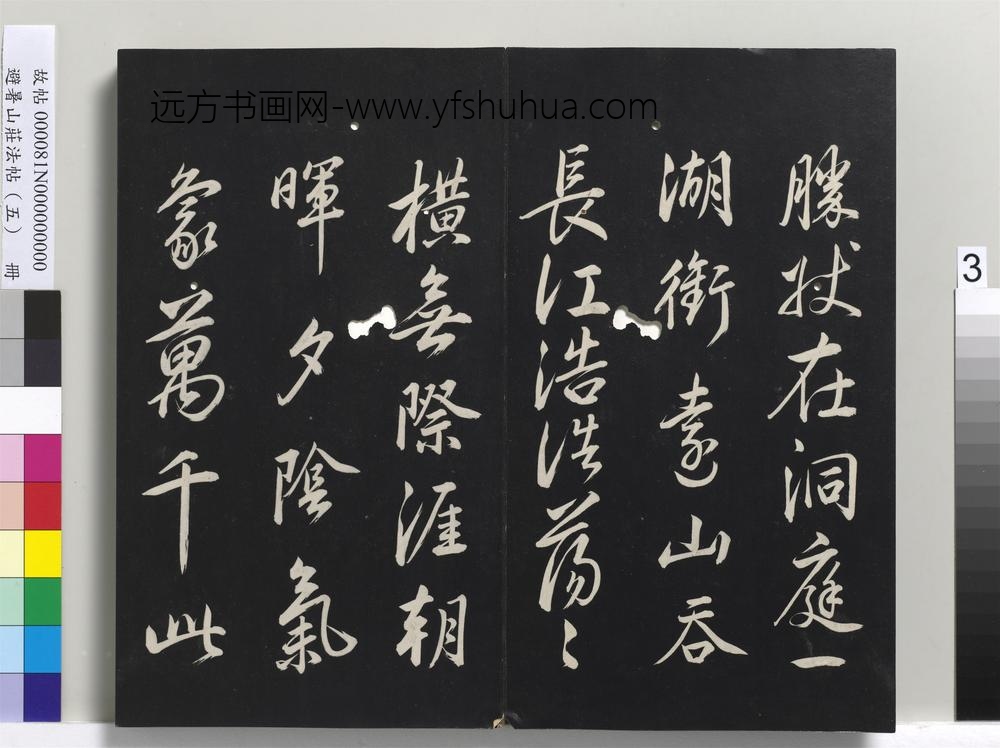 远方书画网-www.yfshuhua.com
勝狀在洞庭一
湖銜遠山吞
長江浩浩蕩〻
橫無際涯朝
暉夕陰氣
象萬千此
故帖 000081N000000000
避暑山莊法帖（五） 冊
3